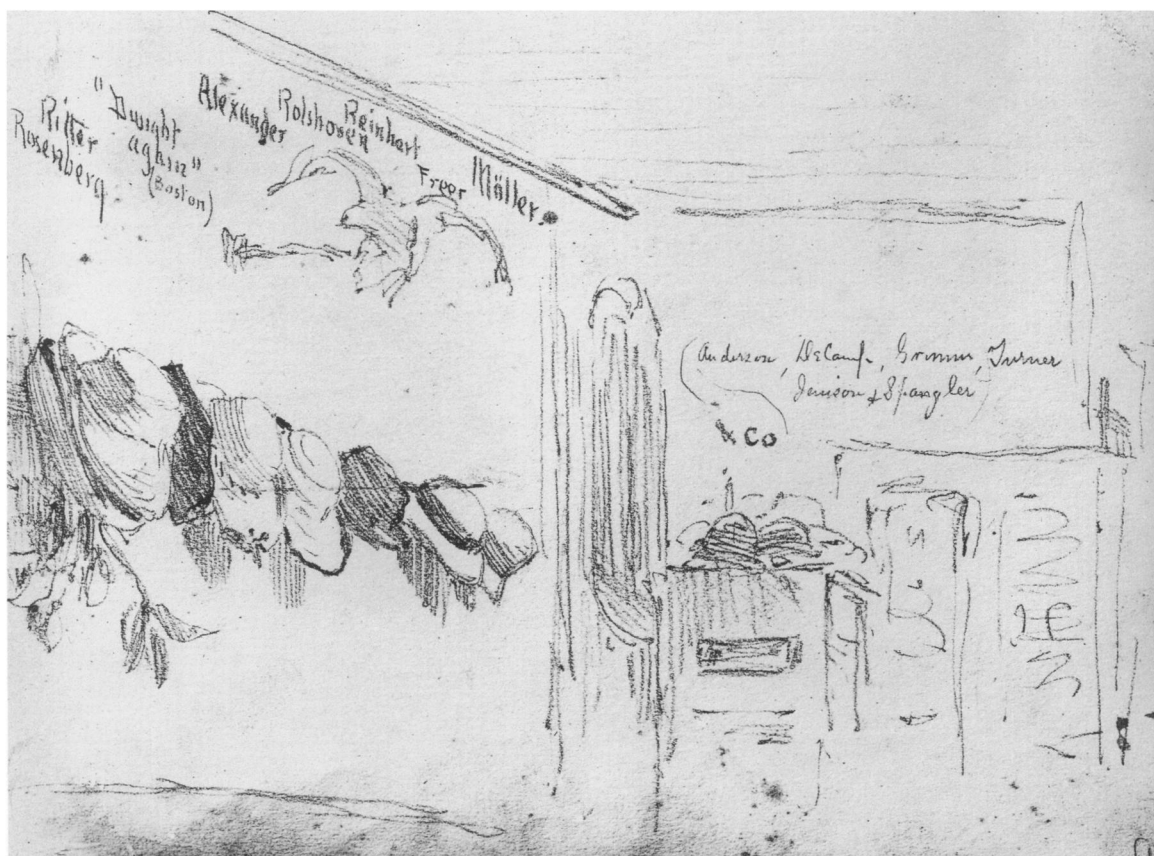 Ritter
Rosenberg
"Dwight
again"
(Boston)
Alexander
Rolshoven
Reinhart
Freer
Möller.
(Anderson, DeCamp, Grimm, Turner
Jenison & Spangler)
& Co